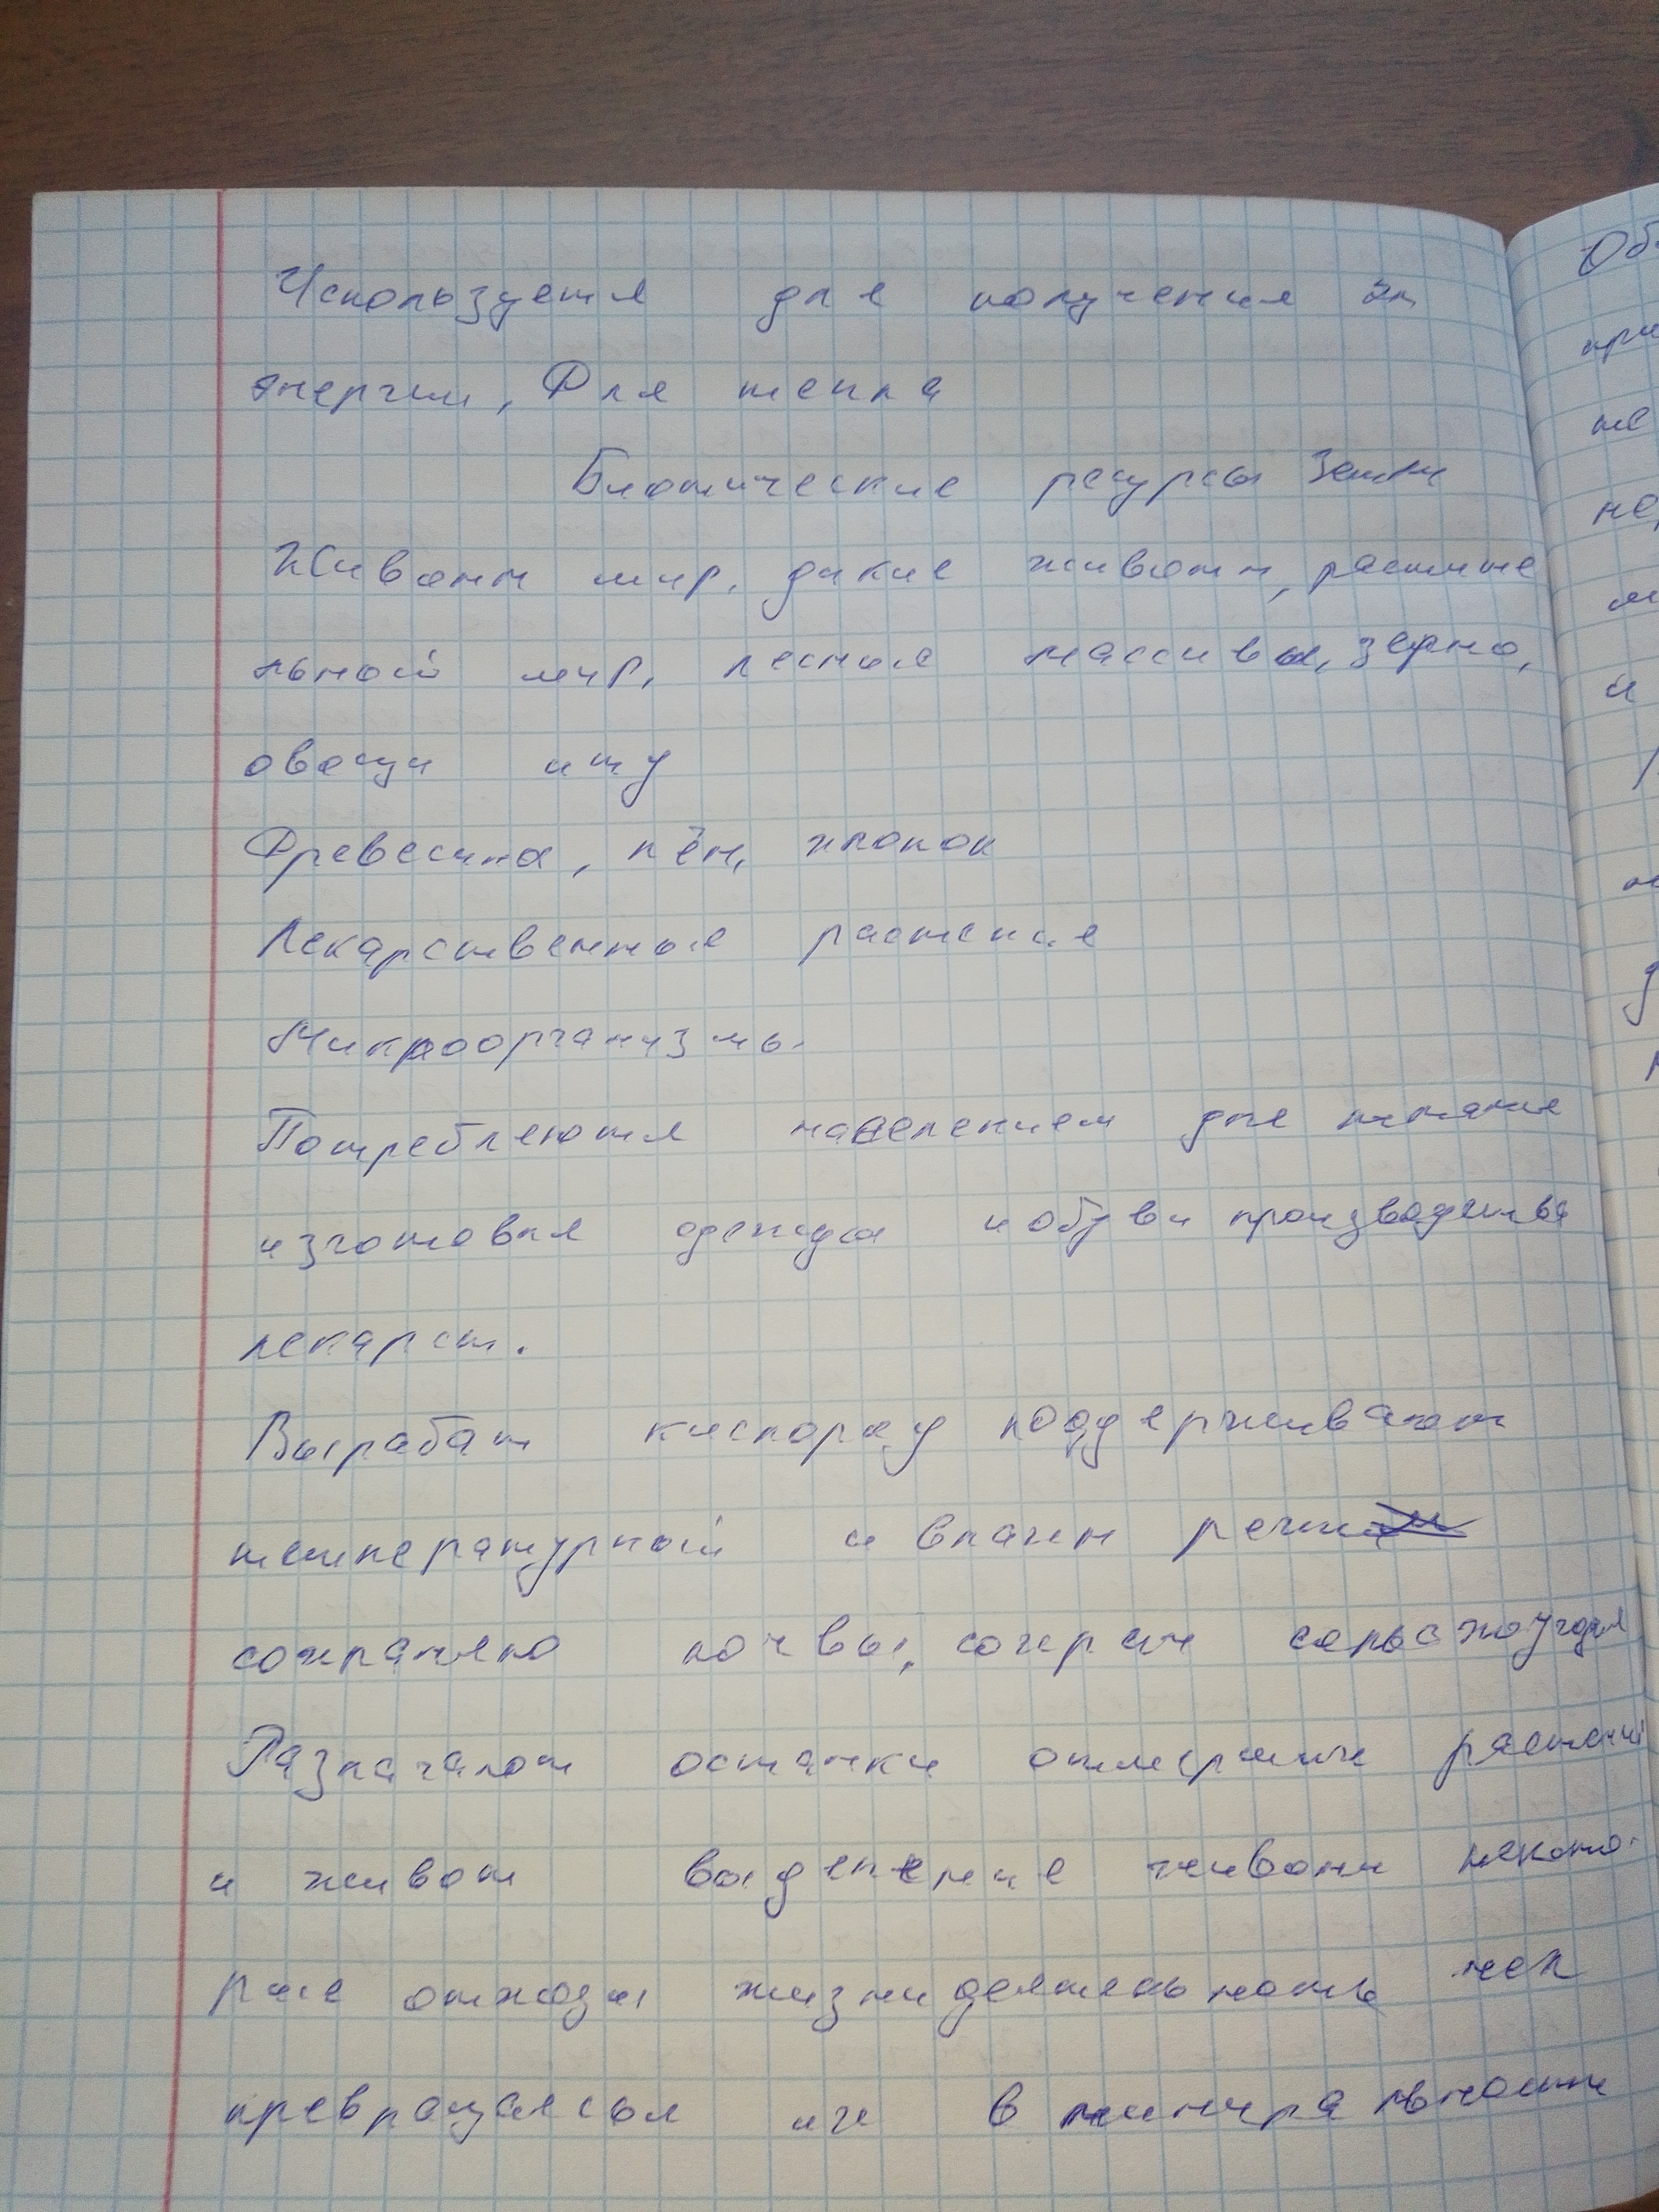 Используется для получения эл
энергии, Для тепла
Биотические ресурсы Земли
Животн мир, дикие животн, растите
льной мир, лесные массивы, зерно,
овощи итд
Древесина, лён, хлопок
Лекарственные растения
Микроорганизмы.
Потребляются населением для питания
изготовля одежды и обуви производства
лекарст.
Вырабат кислород поддерживают
температурный и влажн режи
сохранено почвы, сохран сельхозугодия
Разлагают останки отмерших растений
и живот выделение животн некото-
рые отходы жизнидеятельность чел
превращаясья их в минира льности
Об
при
те
не
и